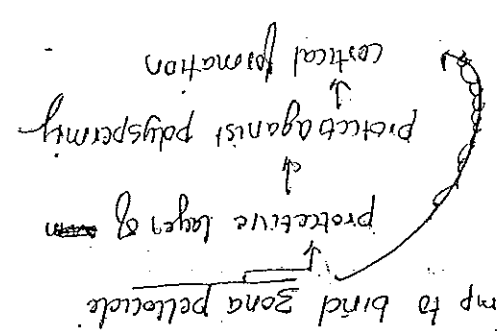 mp to bind zona pellocide
protective layer of
protect aganist polyspermity
cortical formation